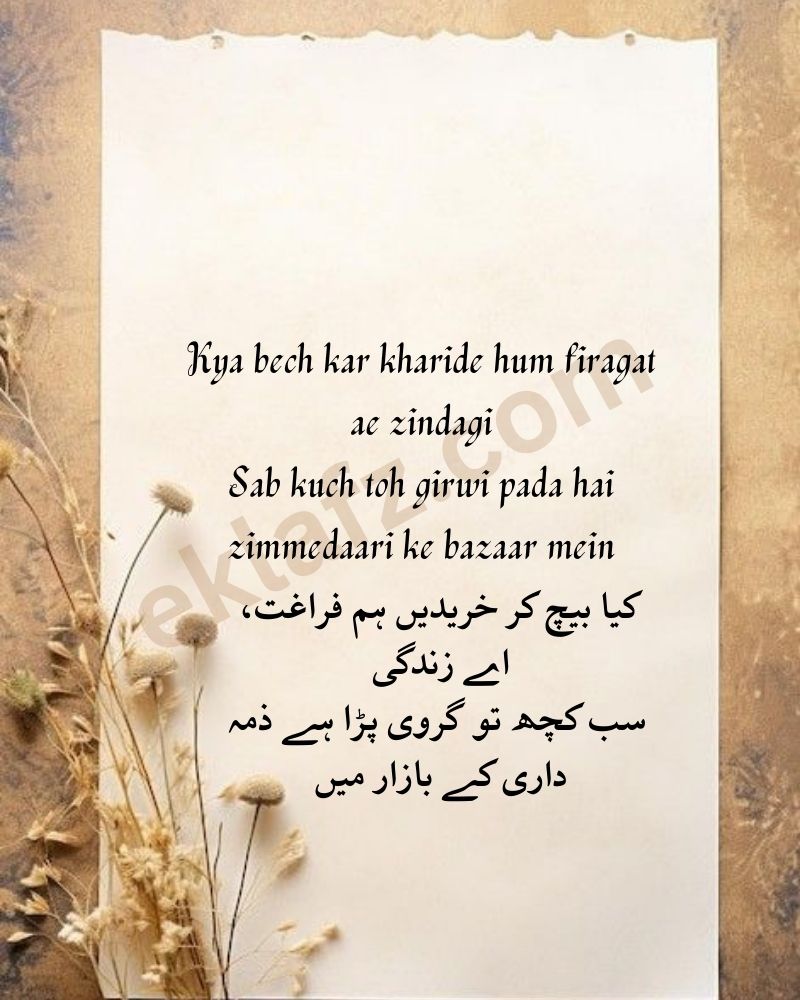 Kya bech kar kharide hum firagat
ae zindagi
Sab kuch toh girwi pada hai
zimmedaari ke bazaar mein
کیا بیچ کر خریدیں ہم فراغت،
اے زندگی
سب کچھ تو گروی پڑا ہے ذمہ
داری کے بازار میں
eklafz.com